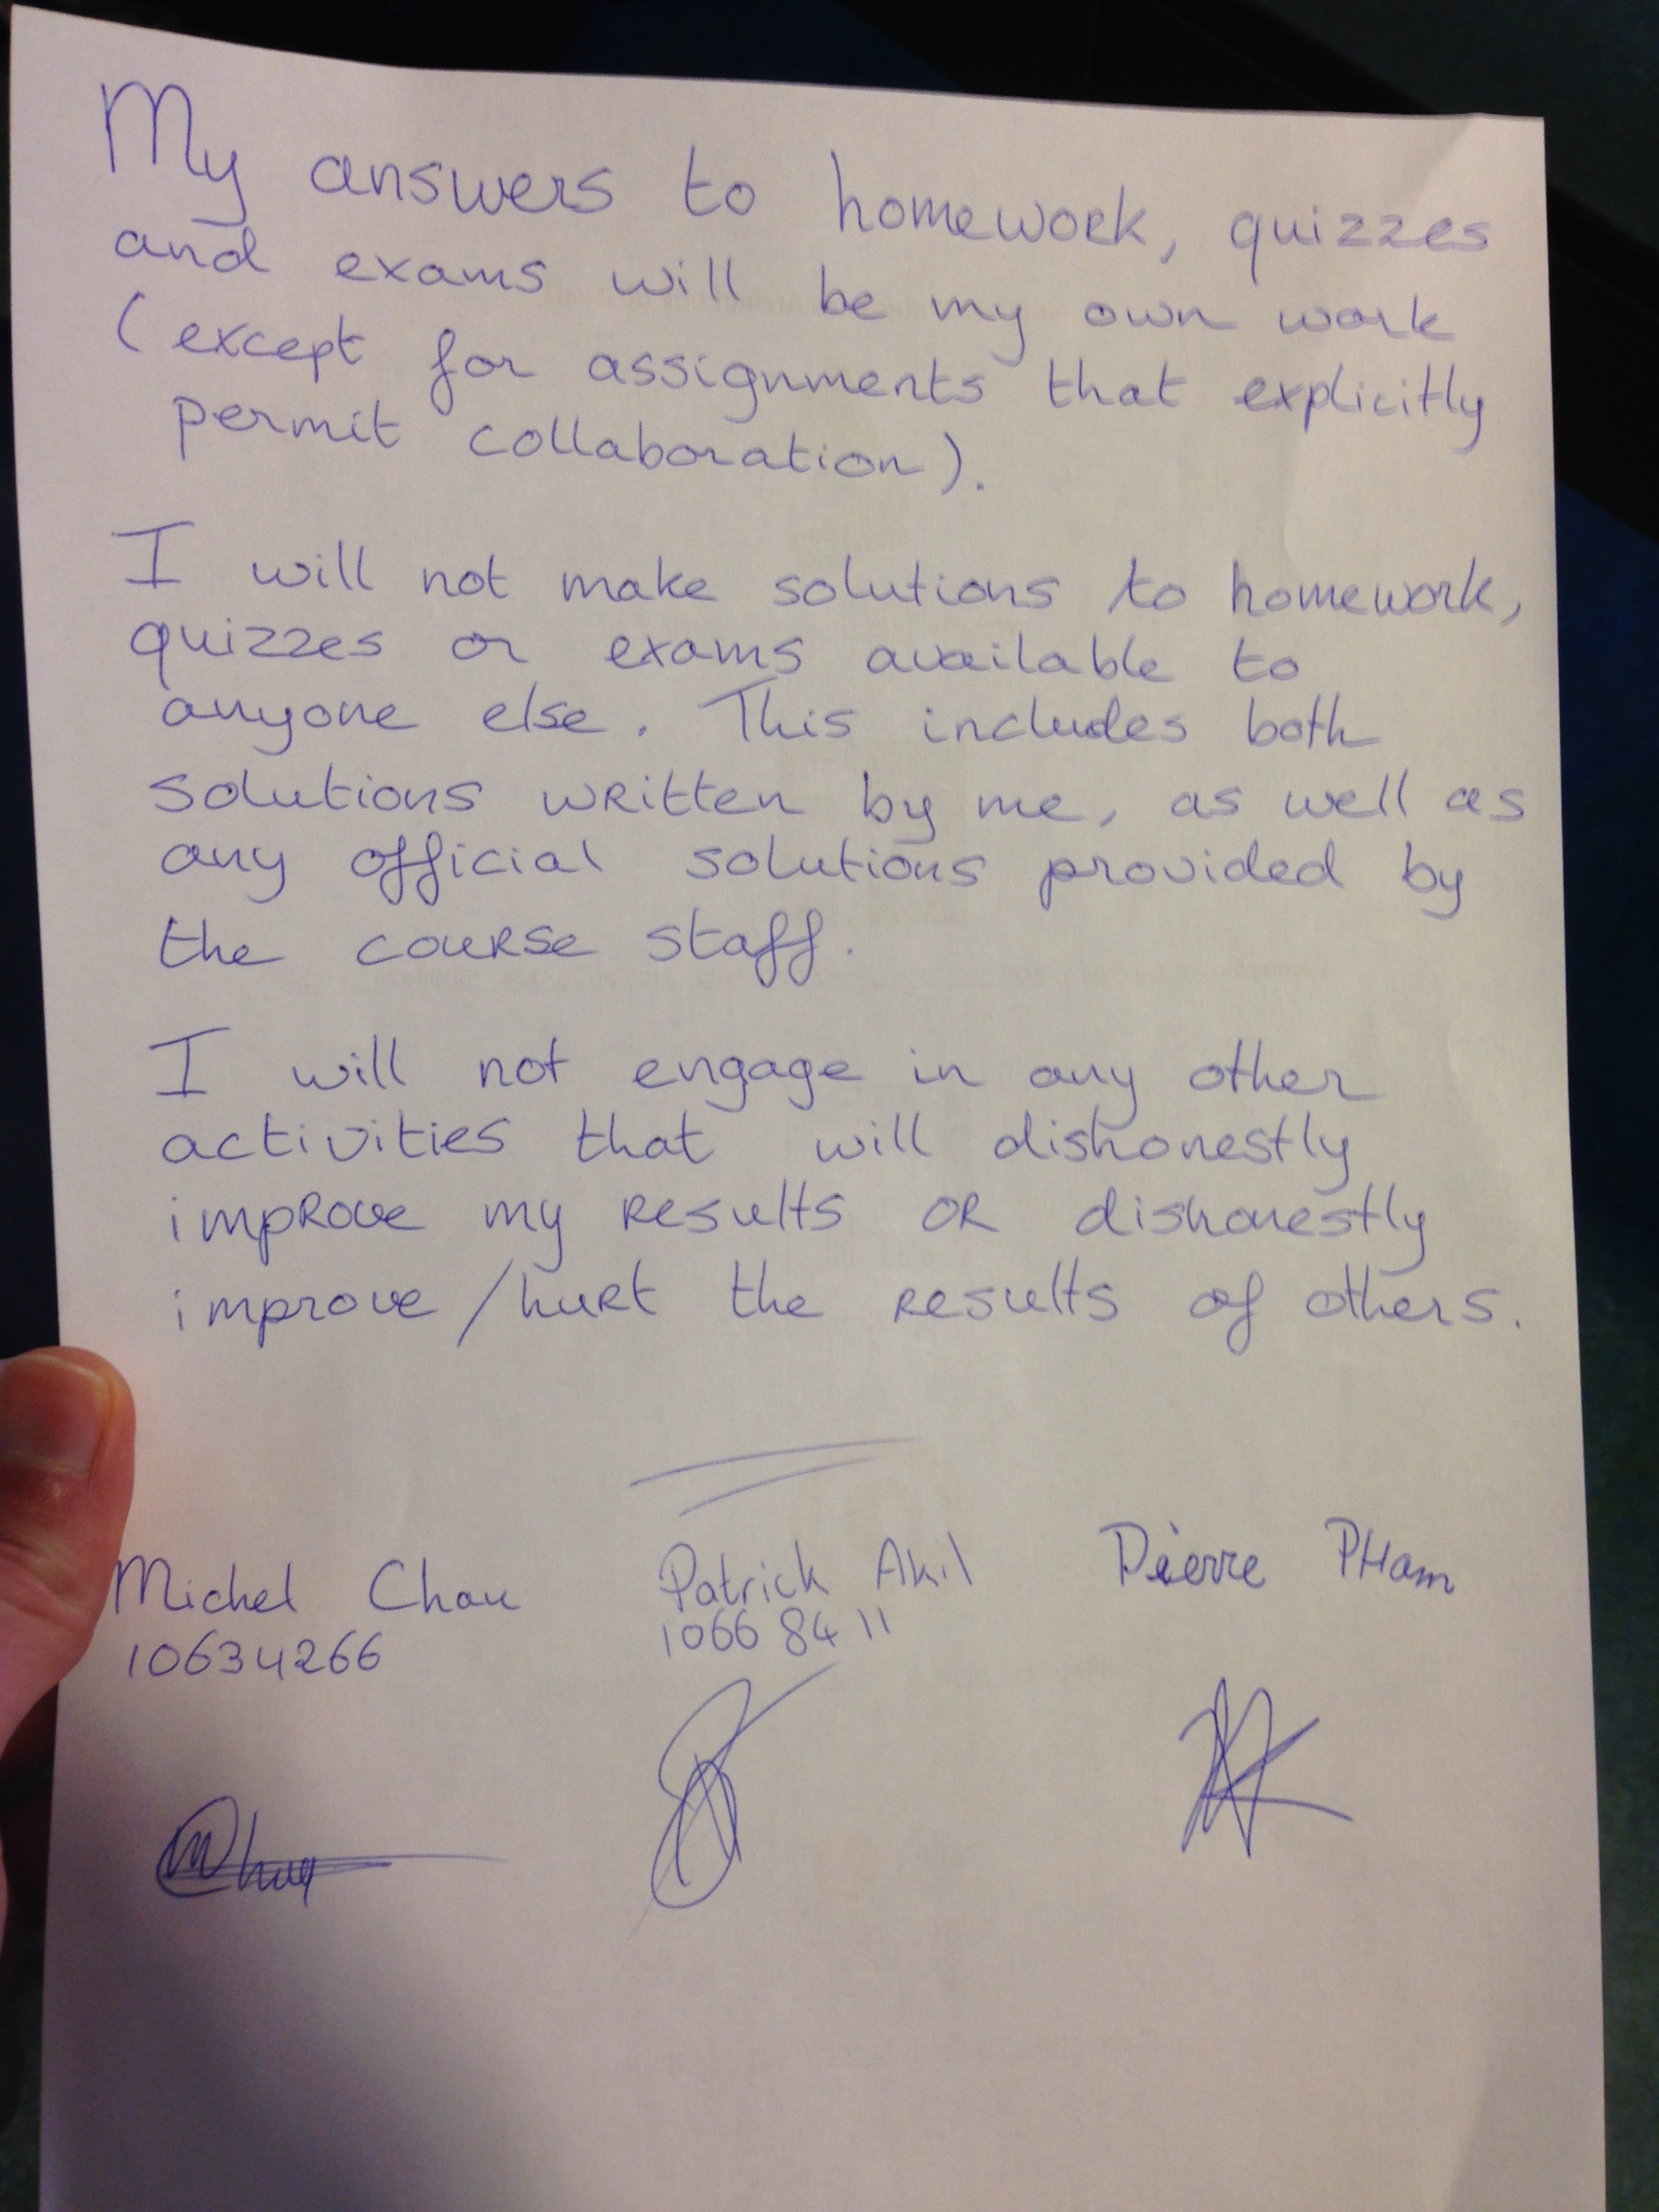 My answers to homework, quizzes
and exams will be my own work
(except for assignments that explicitly
permit collaboration).
I will not make solutions to homework,
quizzes or exams available to
anyone else. This includes both
solutions written by me, as well as
any official solutions provided by
the course staff.
I will not engage in any other
activities that will dishonestly
improve my results or dishonestly
improve/hurt the results of others.
Michel Chau Patrick Akil Pierre PHam
10634266 1066 84 11